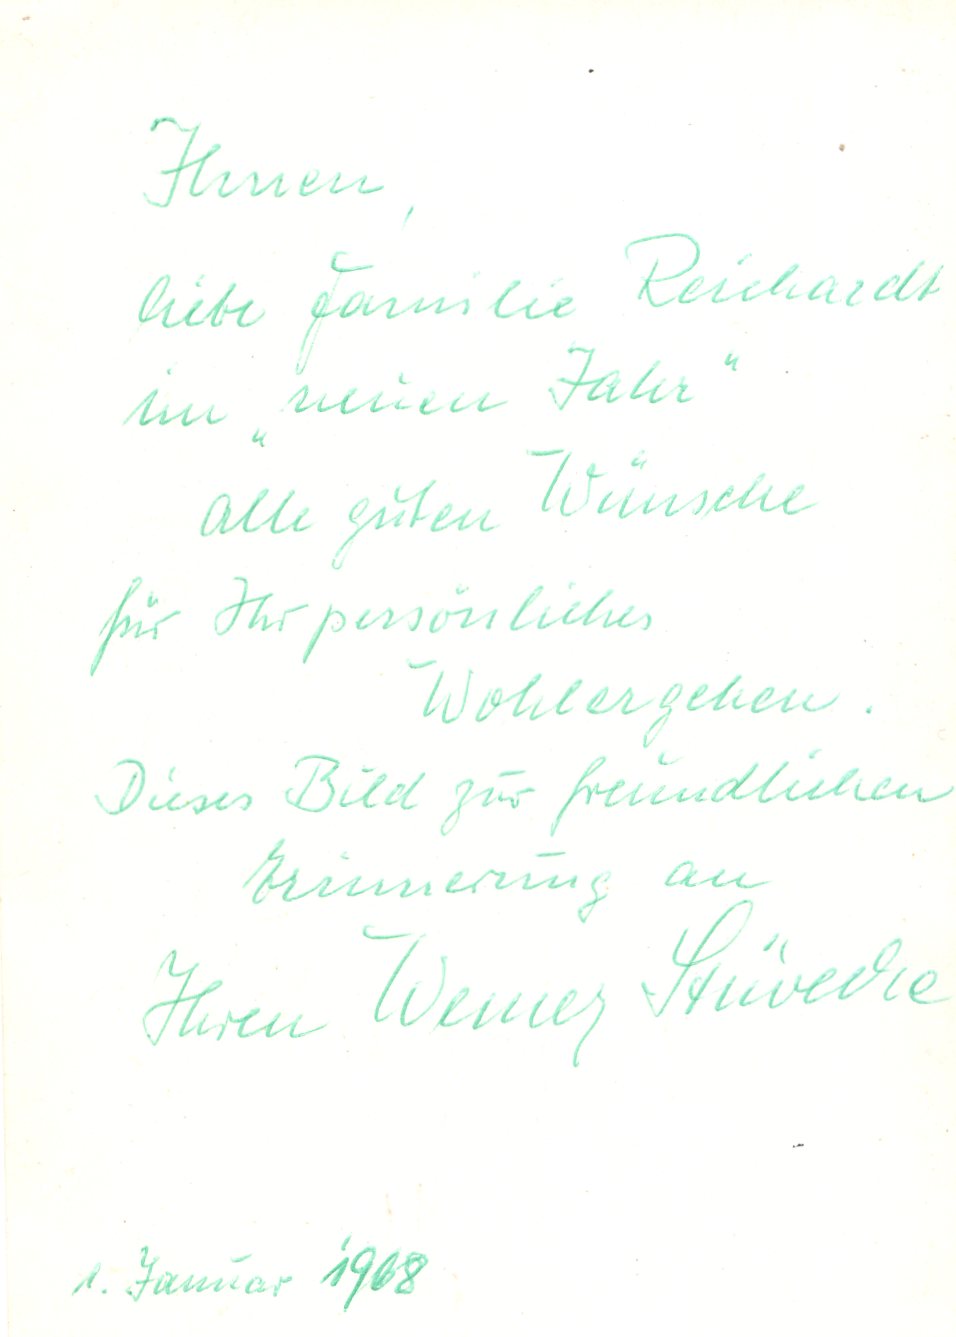 Ihnen,
liebe Familie Reichardt
im „neuen Jahr“
alle guten Wünsche
für Ihr persönliches
Wohlergehen.
Dieses Bild zur freundlichen
Erinnerung an
Ihren Werner Stüvecke
1. Januar 1968